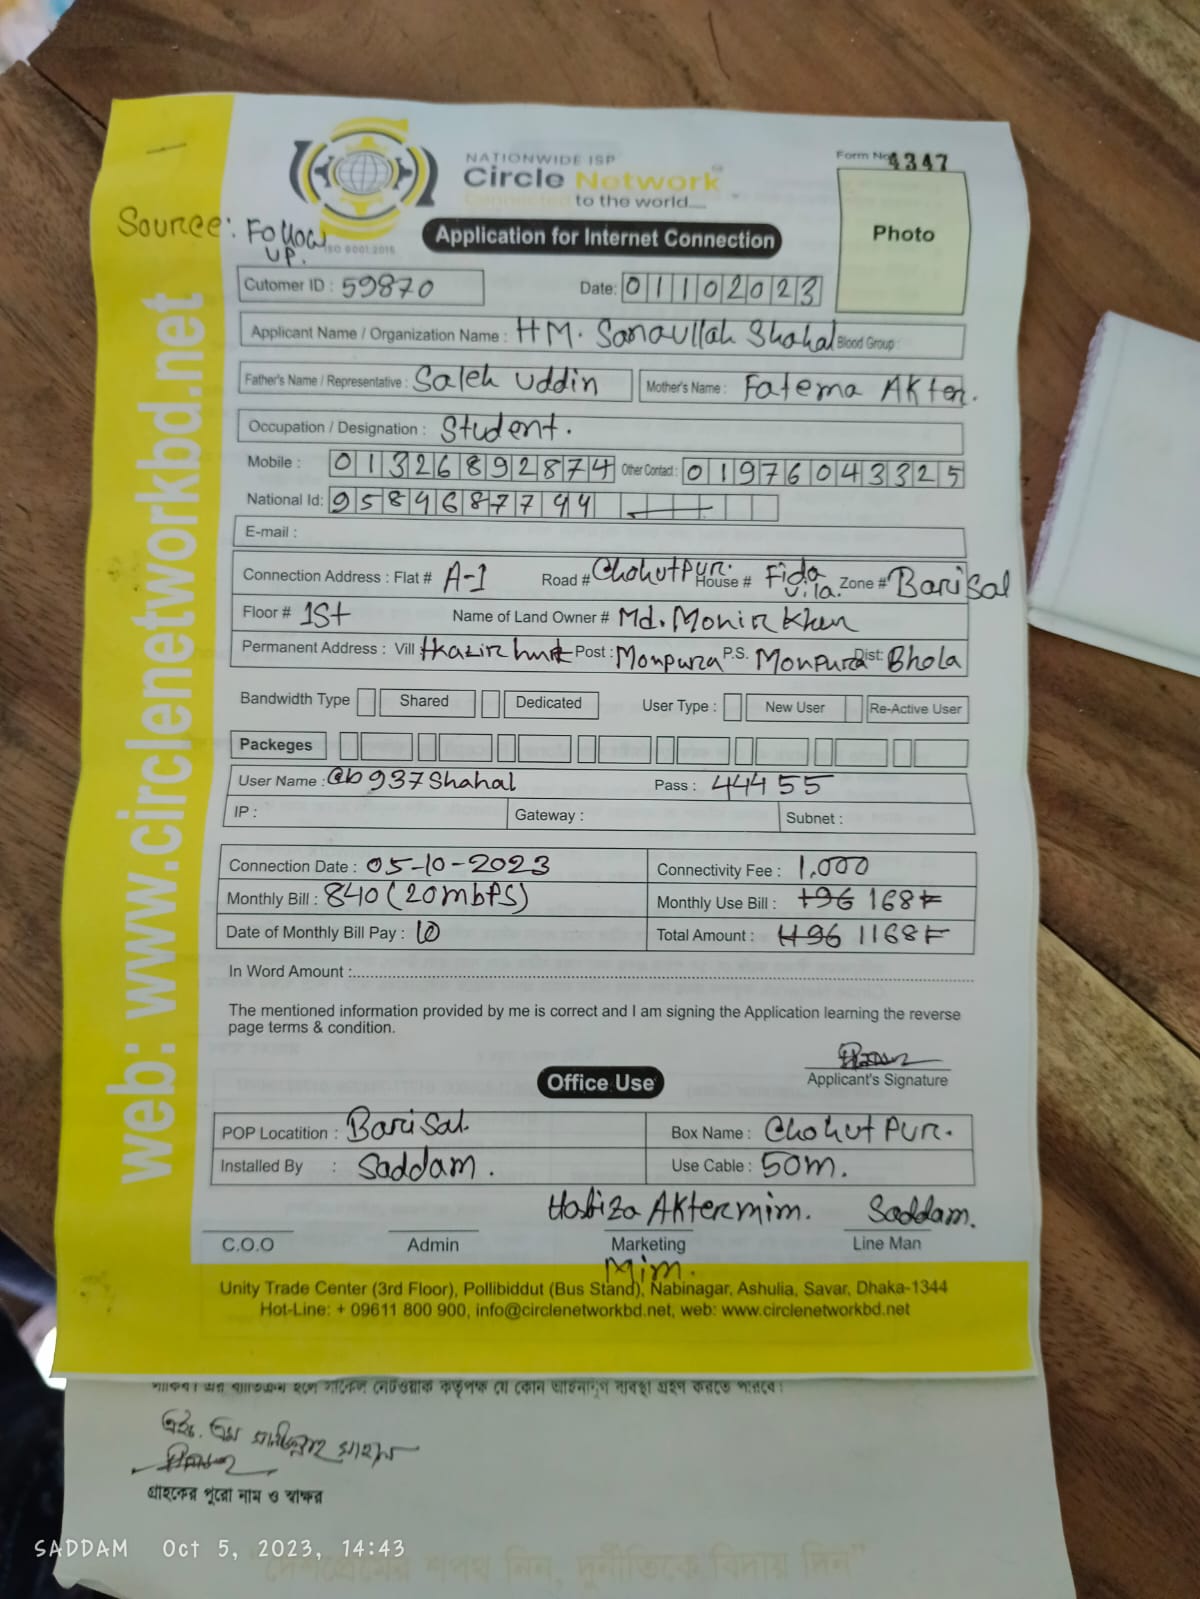 NATIONWIDE ISP
Circle Network
Connected to the world....
ISO 9001:2015
Form No 4347
Photo
Source: Follow
UP.
Application for Internet Connection
Cutomer ID : 59870 Date: 01102023
Applicant Name / Organization Name : HM. Sanaullah Shahal Blood Group :
Father's Name / Representative : Saleh Uddin Mother's Name : Fatema Akter.
Occupation / Designation : Student.
Mobile : 01326892874 Other Contact : 01976043325
National Id: 9584687744
E-mail :
Connection Address : Flat # A-1 Road # Chohutpur. House # Fida Vila. Zone # Barisal
Floor # 1st Name of Land Owner # Md. Monir Khan
Permanent Address : Vill Post : Monpura P.S. Monpura Dist: Bhola
Bandwidth Type Shared Dedicated User Type : New User Re-Active User
Packeges
User Name : @b937Shahal Pass : 44455
IP : Gateway : Subnet :
Connection Date : 05-10-2023 Connectivity Fee : 1,000
Monthly Bill : 840 (20mbps) Monthly Use Bill : 196 168
Date of Monthly Bill Pay : 10 Total Amount : 1196 1168
In Word Amount :
The mentioned information provided by me is correct and I am signing the Application learning the reverse
page terms & condition.
Applicant's Signature
Office Use
POP Locatition : Barisal Box Name : Chohutpur.
Installed By : Saddam. Use Cable : 50m.
Habiza Aktermim. Saddam.
C.O.O Admin Marketing Line Man
Mim.
Unity Trade Center (3rd Floor), Pollibiddut (Bus Stand), Nabinagar, Ashulia, Savar, Dhaka-1344
Hot-Line: + 09611 800 900, info@circlenetworkbd.net, web: www.circlenetworkbd.net
web: www.circlenetworkbd.net
নেটওয়ার্ক কর্তৃপক্ষ যে কোন আইনানুগ ব্যবস্থা গ্রহণ করতে পারবে।
গ্রাহকের পুরো নাম ও স্বাক্ষর
"দেশপ্রেমের শপথ নিন, দুর্নীতিকে বিদায় দিন"
SADDAM Oct 5, 2023, 14:43